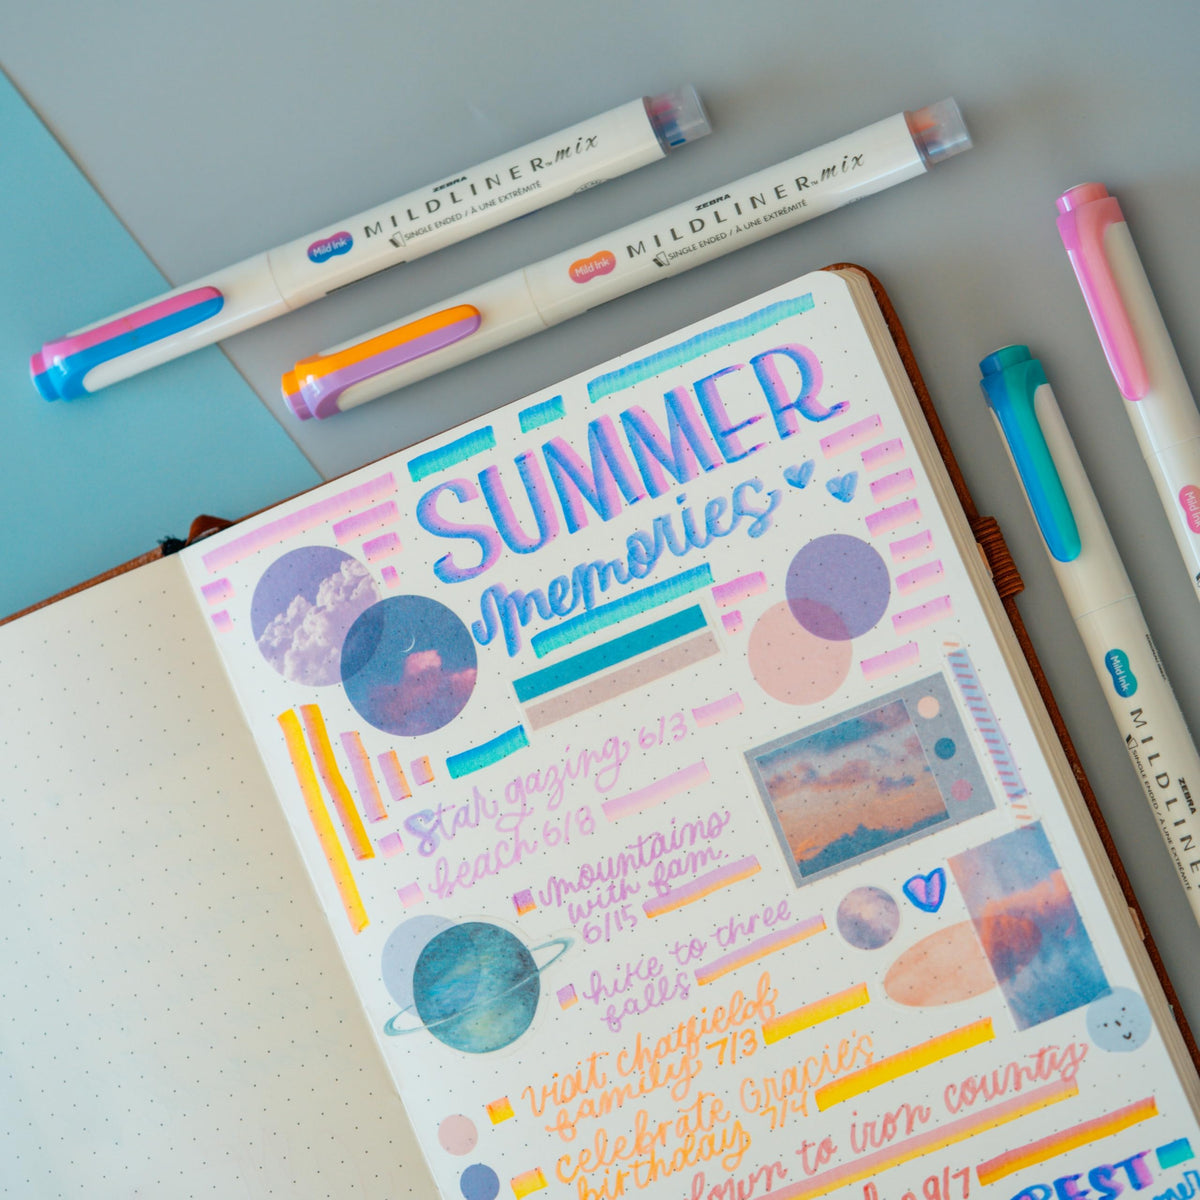 ZEBRA
MILDLINER™ mix
SINGLE ENDED / À UNE EXTRÉMITÉ
Mild Ink
ZEBRA
MILDLINER™ mix
SINGLE ENDED / À UNE EXTRÉMITÉ
Mild Ink
SUMMER
memories
Star gazing 6/3
beach 6/8
mountains
with fam.
6/15
hike to three
falls
visit chatfielof
family 7/3
celebrate Gracie's
birthday 7/4
down to iron county
9/7
Mild Ink
ZEBRA
MILDLINE
SINGLE ENDED / À UNE EXTRÉMITÉ
Mild Ink